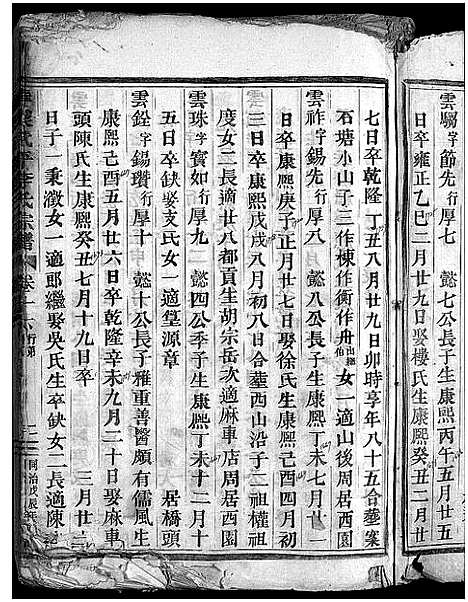 雲騆字節先行厚七　懿七公長子生康熙丙午五月廿五
日卒雍正乙巳二月廿九日娶樓氏生康熙癸丑二月廿
七日卒乾隆丁丑八月廿九日卯時享年八十五合墓案
石塘小山子三作棟作衡作舟出繼伯女一適山後周居西園
雲祚字錫先行厚八　懿八公長子生康熙丁未七月廿一
日卒康熙庚子正月廿七日娶徐氏生康熙己酉四月初
三日卒康熙戊戌八月初八日合葬西山沿子二祖權祖
度女二長適廿八都貢生胡宗岳次適麻車店周居西園
雲珠字寶如行厚九　懿四公季子生康熙丁未十二月十
五日卒缺娶支氏女一適堂源章　居橋頭
雲銓字錫瓚行厚十　懿十公長子雅重善醫頗有儒風生
康熙己酉五月廿六日卒乾隆辛未九月二十日娶麻車
頭陳氏生康熙癸丑七月十九日卒　三月廿二
日子一秉澂女一適郎繼娶吳氏生卒缺女二長適陳
氏宗譜　卷十六　行弟
同治戊辰年